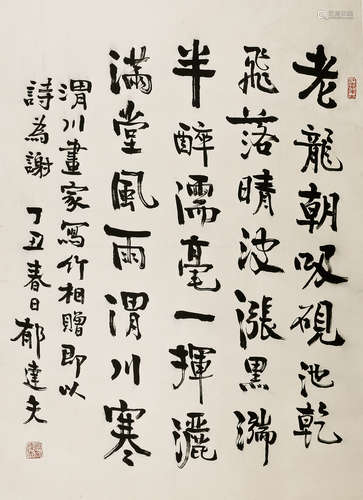 老龍朝吸硯池乾
飛落晴波漲黑湍
半醉濡毫一揮灑
滿堂風雨渭川寒
渭川畫家寫竹相贈即以
詩為謝 丁丑春日郁達夫